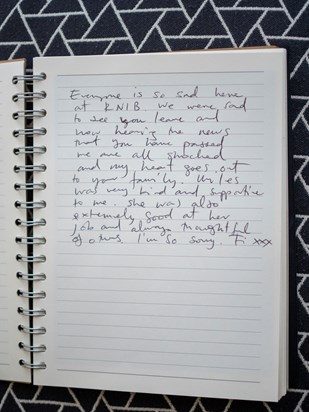 Everyone is so sad here
at RNIB. We were sad
to see you leave and
now hearing the news
that you have passed
we are all shocked
and my heart goes out
to your family.
was very kind and supportive
to me. She was also
extremely good at her
job and always thoughtful
of others. I'm so sorry. Fi xxx